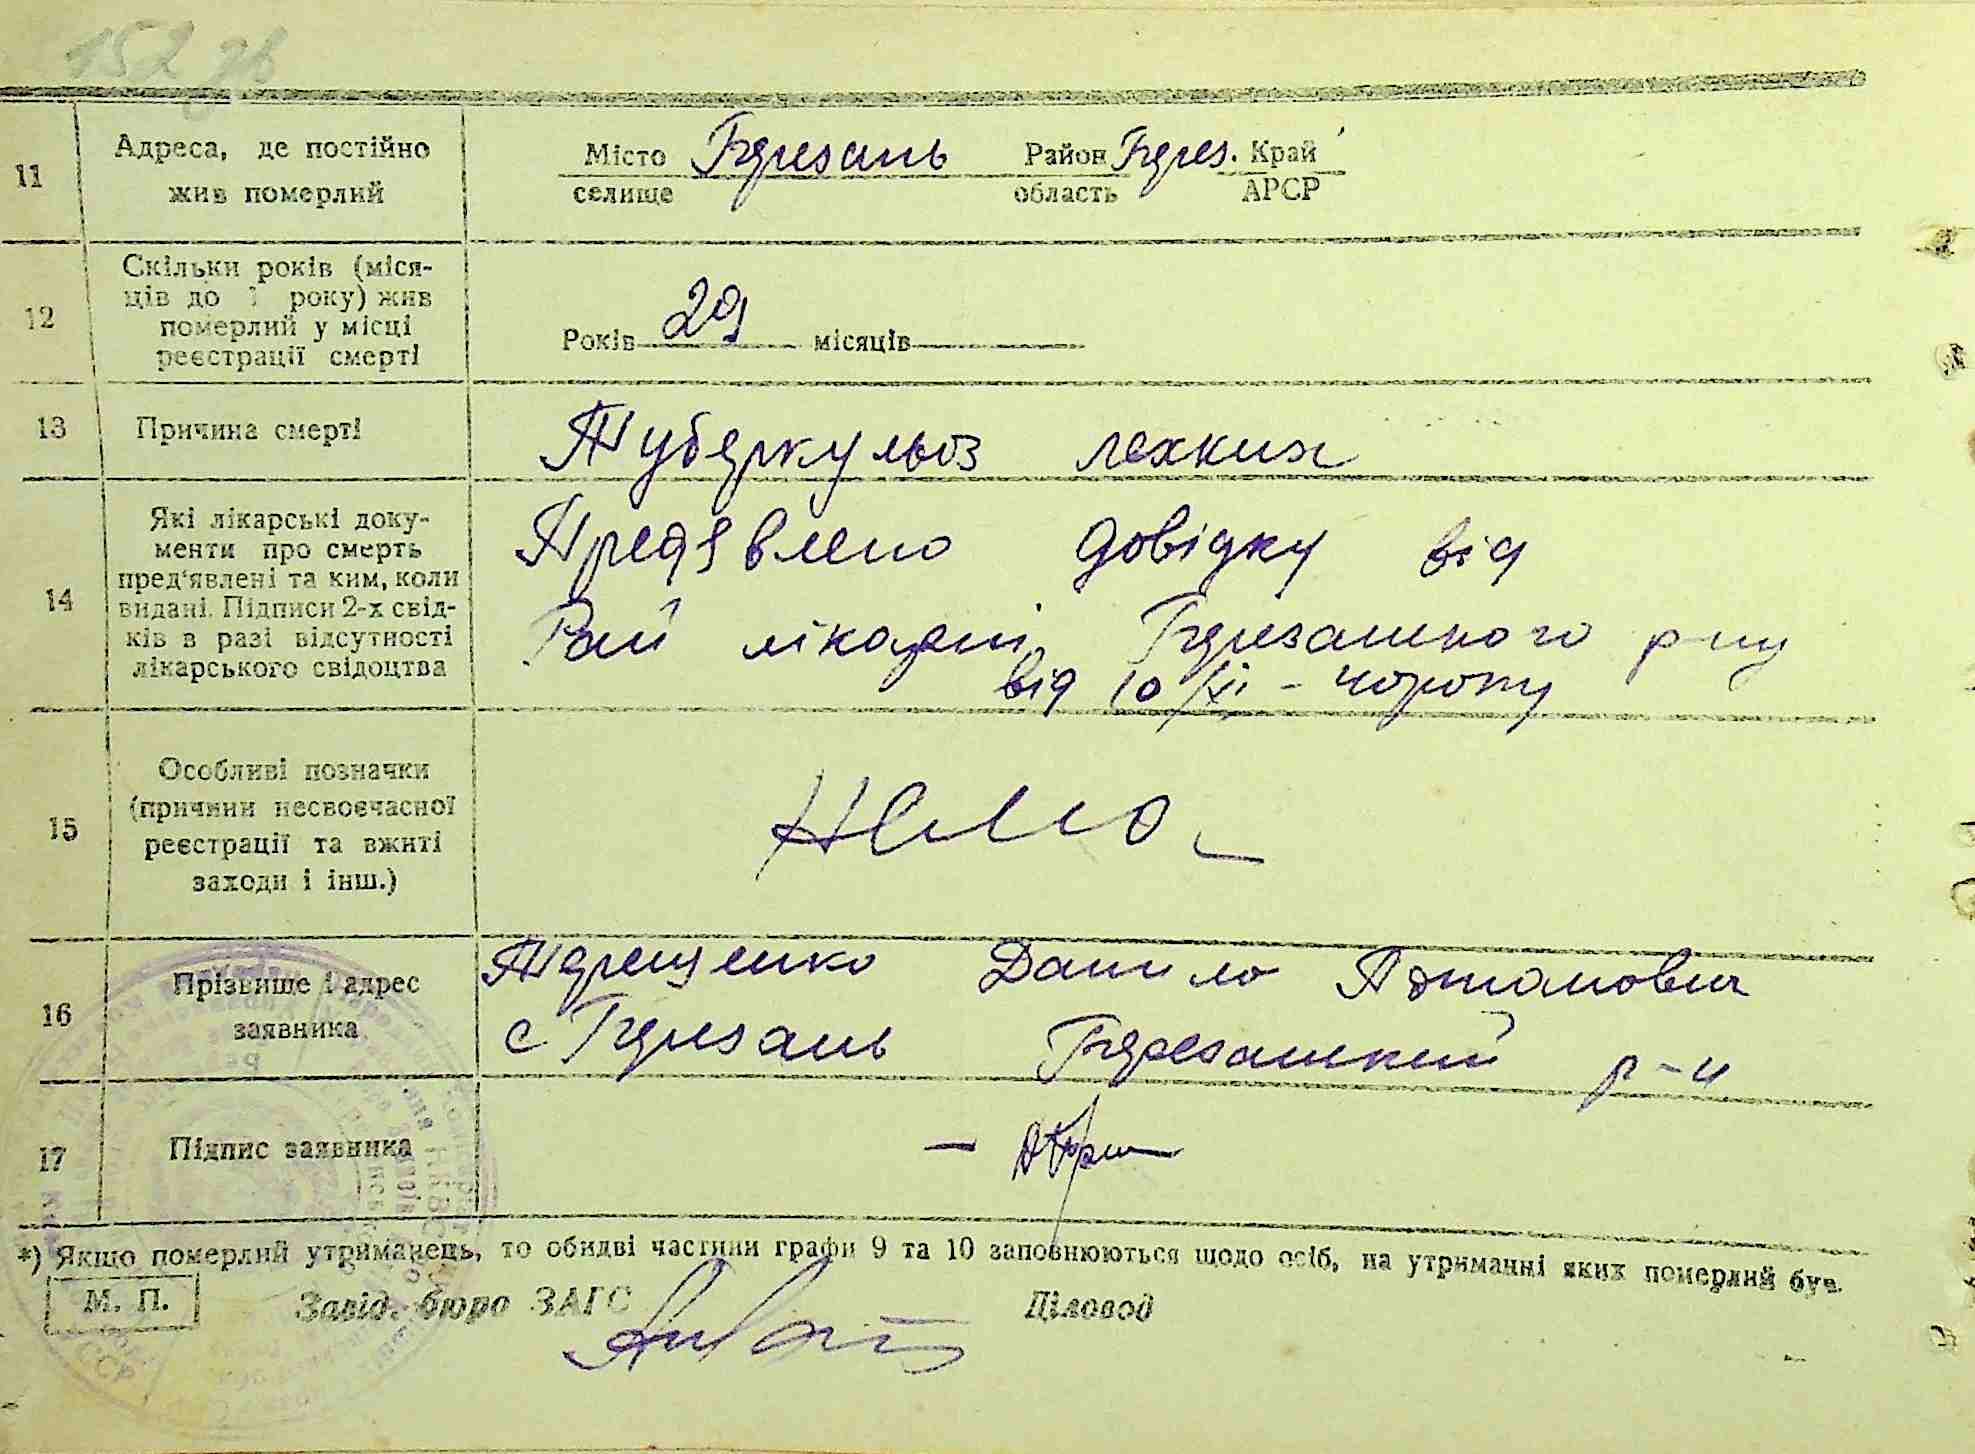 152 зв
11 Адреса, де постійно жив померлий Місто селище Березань Район область Берез. Край АРСР
12 Скільки років (міся-
ців до 1 року) жив
померлий у місці
реєстрації смерті
Років 29 місяців
13 Причина смерті Туберкульоз лехких
14 Які лікарські доку-
менти про смерть
пред'явлені та ким, коли
видані. Підписи 2-х свід-
ків в разі відсутності
лікарського свідоцтва
Предявлено довідку від
Рай лікарні Березанского р-ну
від 10/XI -
15 Особливі позначки
(причини несвоєчасної
реєстрації та вжиті
заходи і інш.)
Немо
16 Прізвище і адрес
заявника
Терещенко Данило
с Березань Березанский р-н
17 Підпис заявника
*) Якщо померлий утриманець, то обидві частини графи 9 та 10 заповнюються щодо осіб, на утриманні яких померлий був.
М. П. Завід. бюро ЗАГС Діловод